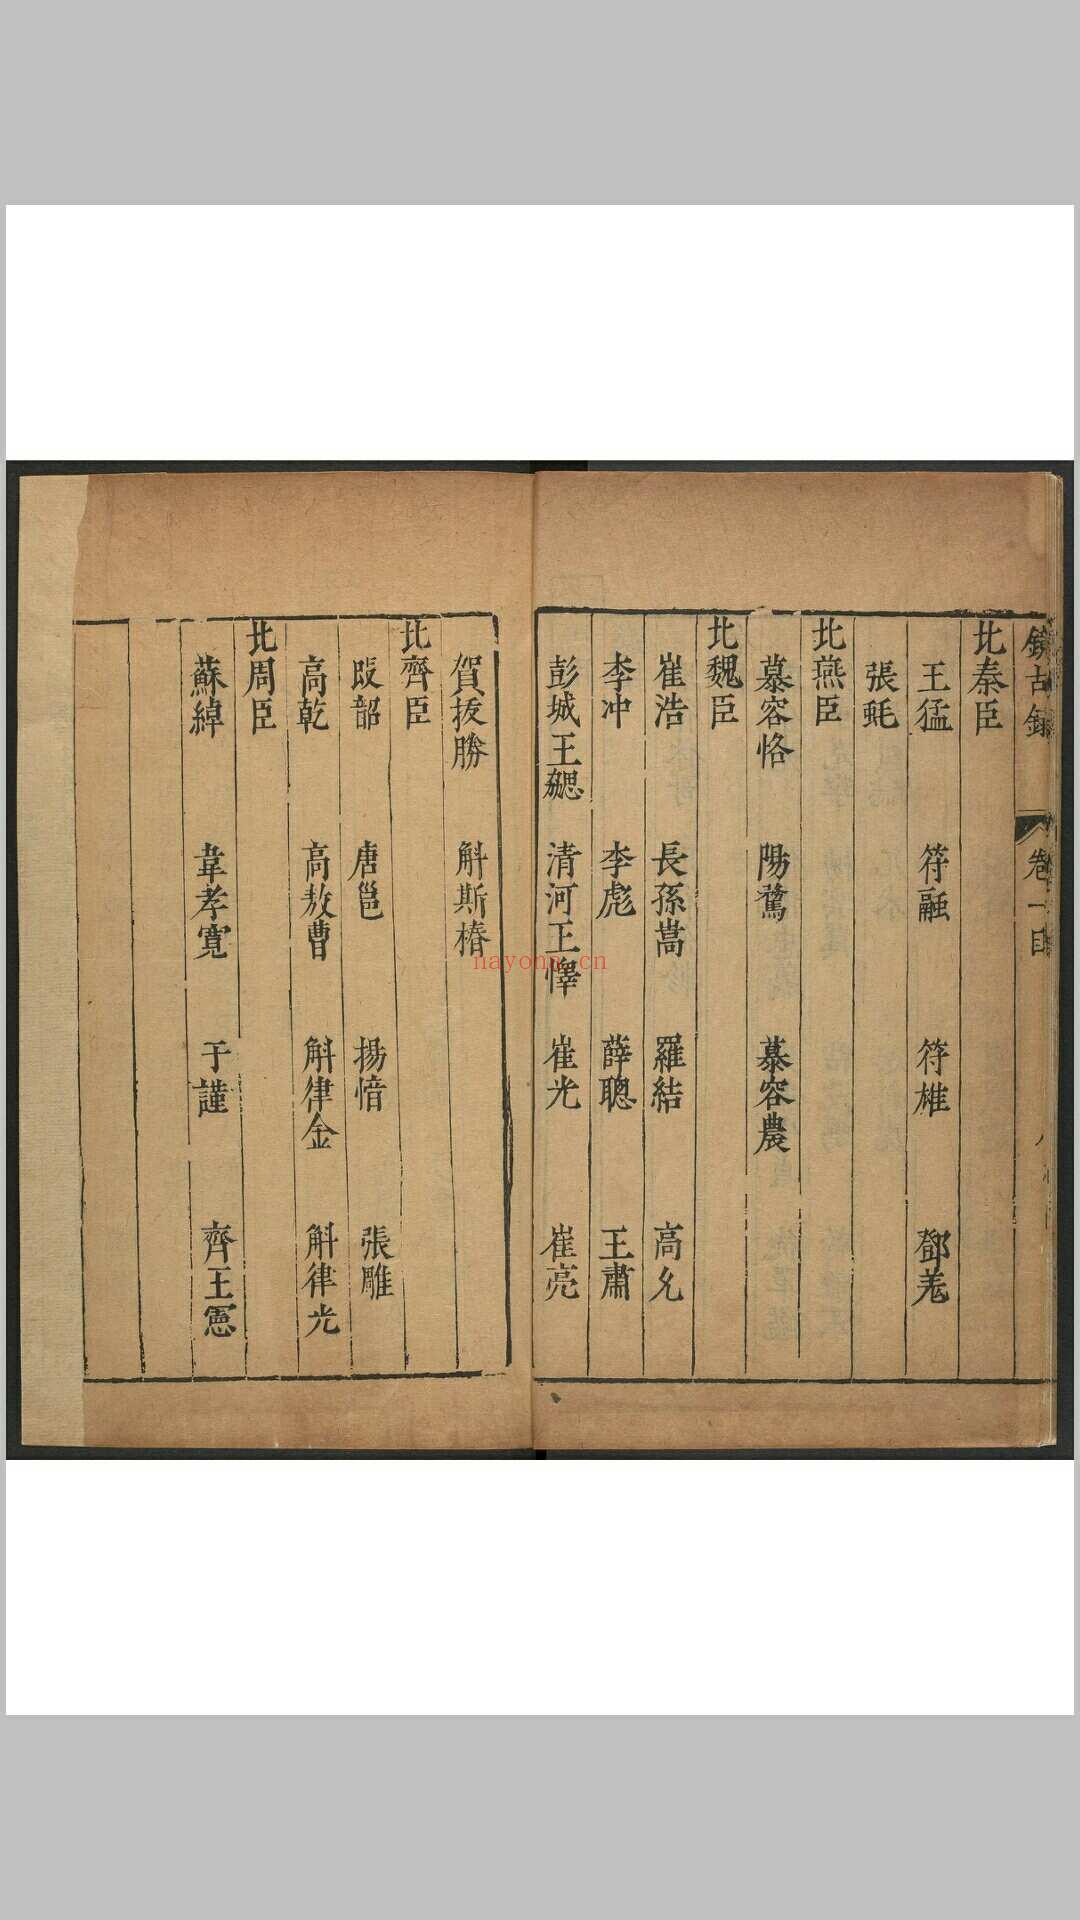 鏡古錄 卷一目
北秦臣
王猛 符融 符雄 鄧羌
張蚝
北燕臣
慕容恪 陽騖 慕容農
北魏臣
崔浩 長孫嵩 羅結 高允
李冲 李彪 薛聰 王肅
彭城王勰 清河王懌 崔光 崔亮
賀拔勝 斛斯椿
北齊臣
段韶 唐邕 揚愔 張雕
高乾 高敖曹 斛律金 斛律光
北周臣
蘇綽 韋孝寬 于謹 齊王憲
nayona.cn